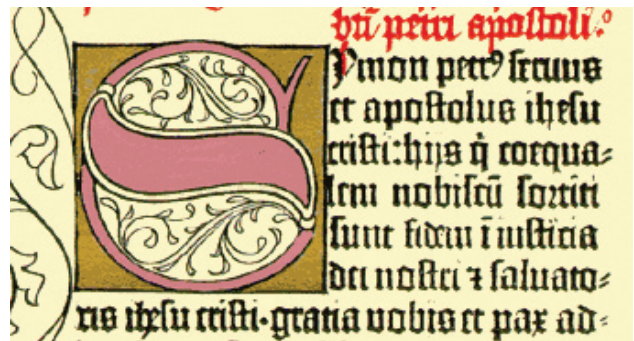 bti petri apostoli.
Symon petrꝰ seruus
et apostolus ihesu
cristi: hijs q̇ coequa⸗
lem nobiscū sortiti
sunt fidem ī iusticia
dei nostri ⁊ saluato⸗
ris ihesu cristi·gratia vobis et pax ad⸗